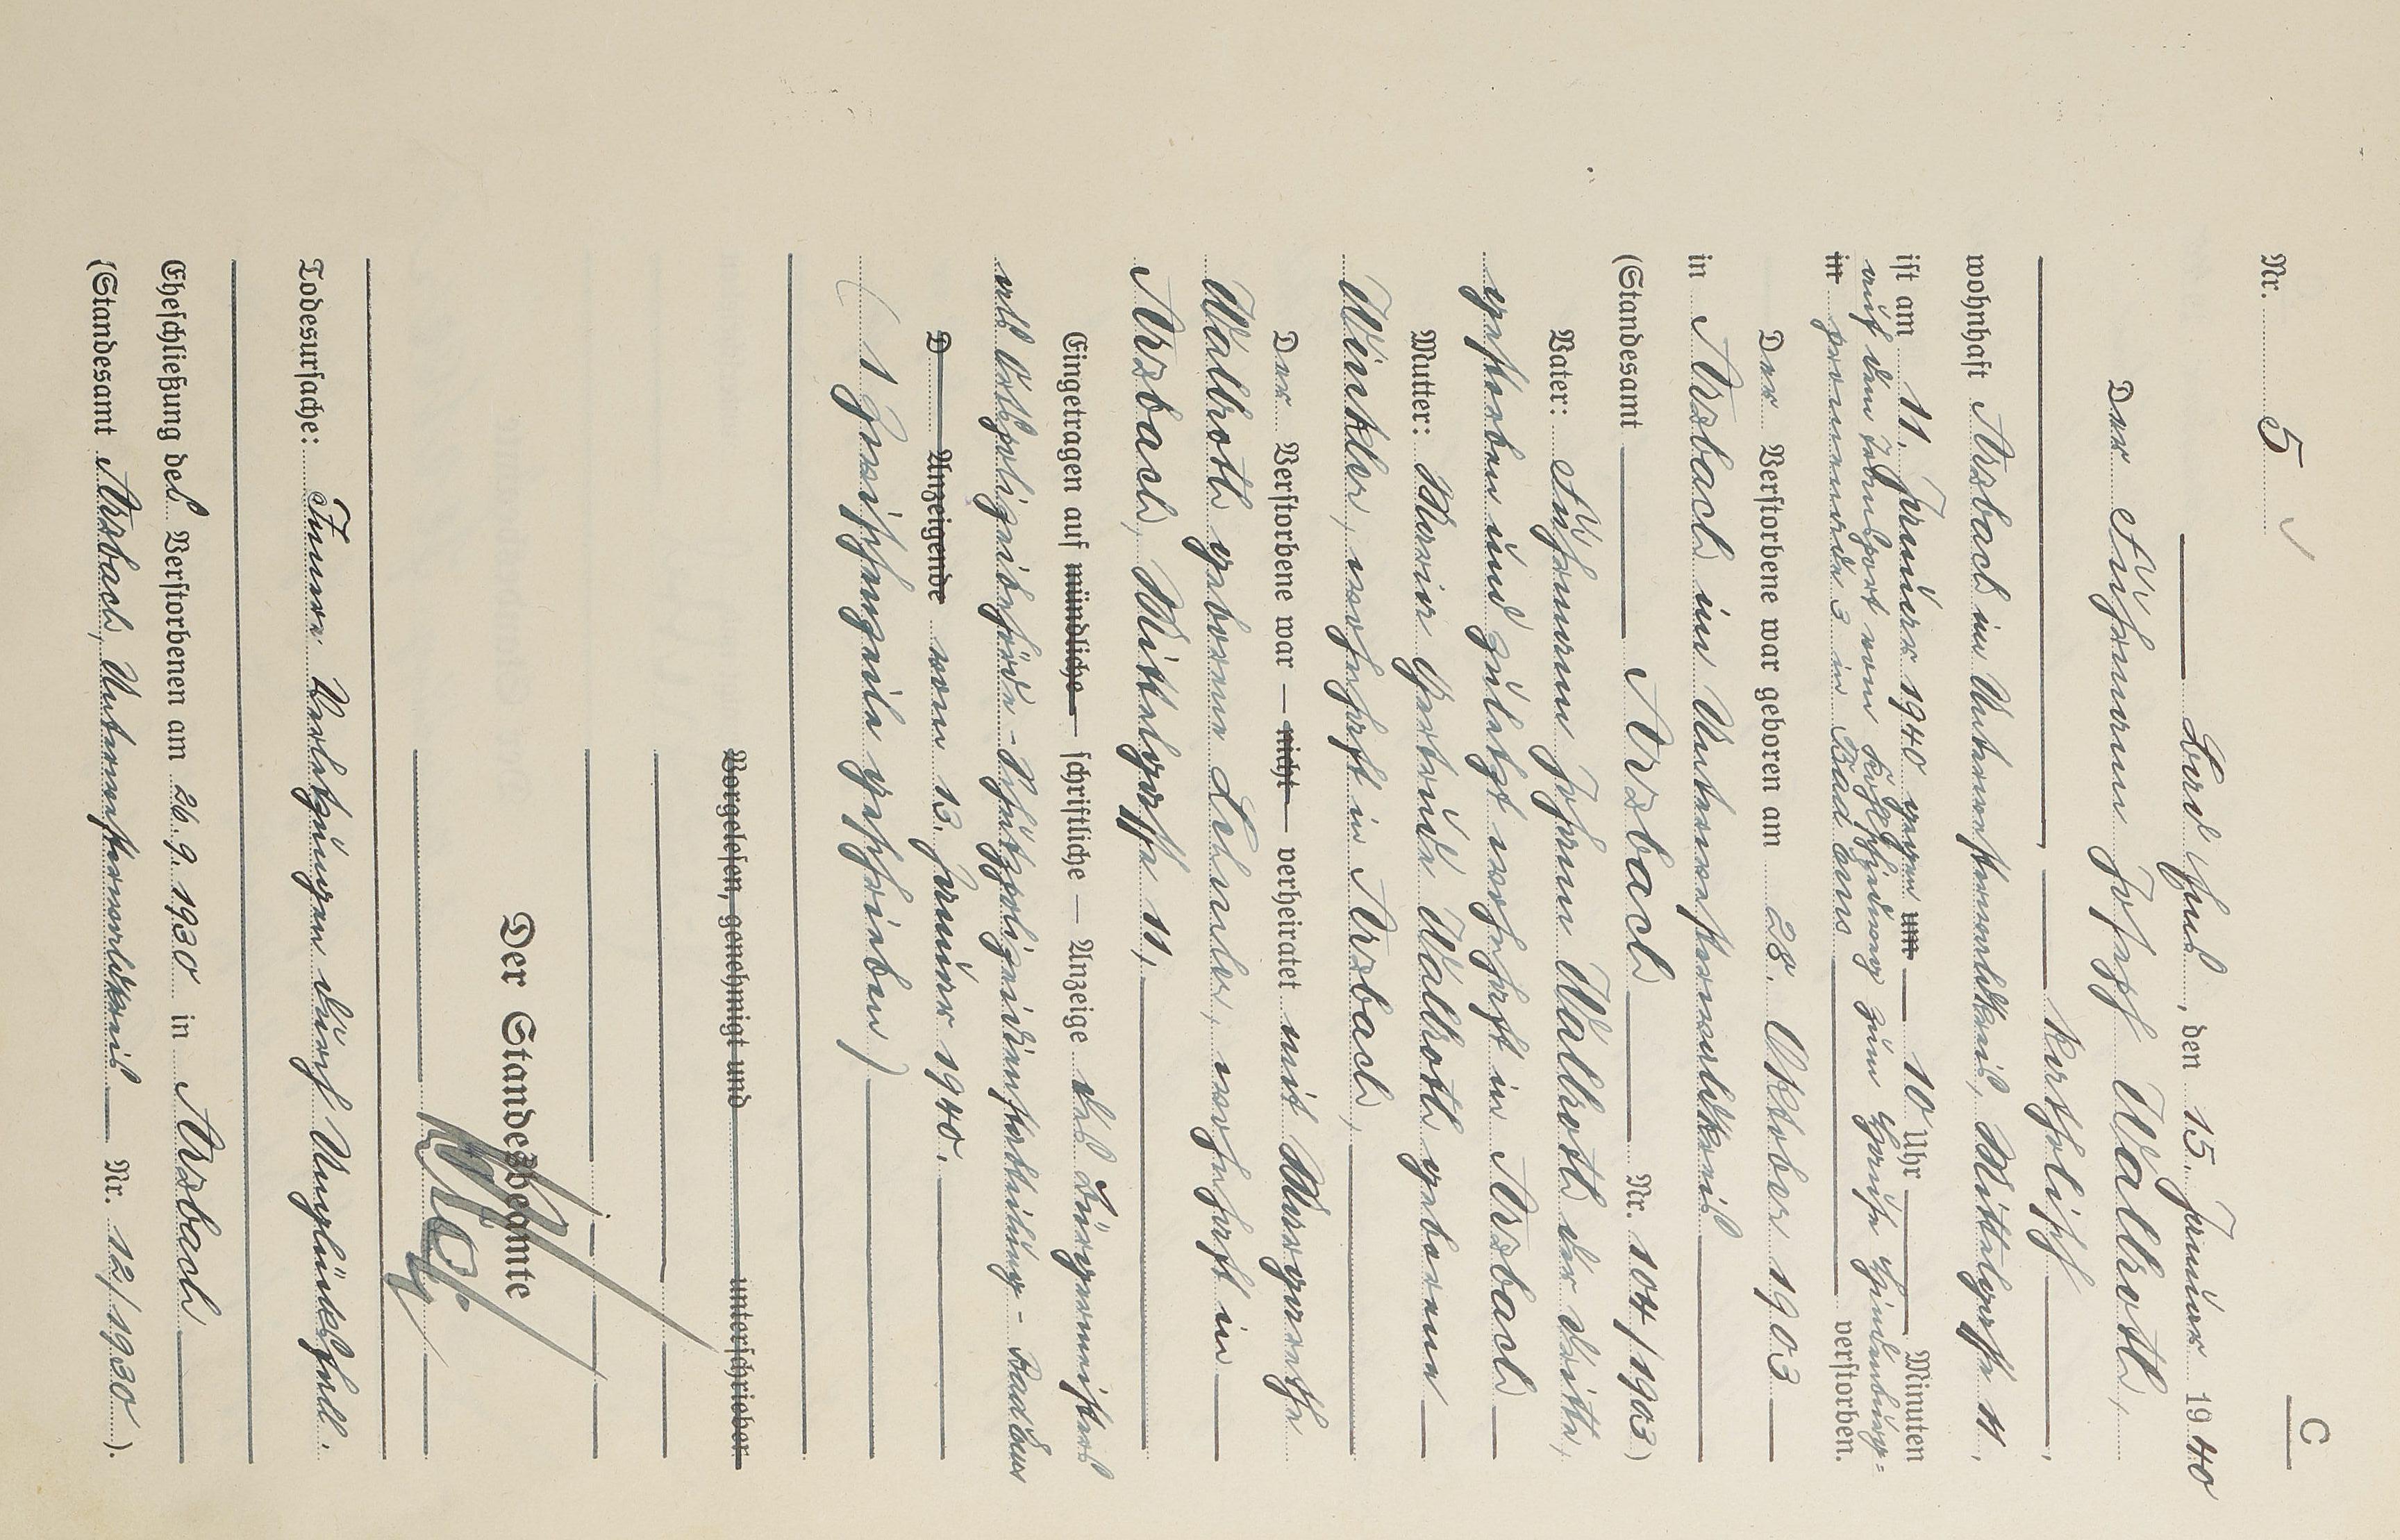 C
Nr. 5
Bad Ems, den 15. Januar 1940
Der Fuhrmann Josef Wallroth,
katholisch,
wohnhaft Arzbach im Unterwesterwaldkreis, Mittelgasse 11,
ist am 11. Januar 1940 gegen um 10 Uhr Minuten
auf dem Transport vom zum Hause Hindenburg-
in promenade 3 in Bad Ems verstorben.
Der Verstorbene war geboren am 28. Oktober 1903
in Arzbach im Unterwesterwaldkreis
(Standesamt Arzbach Nr. 104/1903)
Vater: Fuhrmann Johann Wallroth der dritte,
gestorben und zuletzt wohnhaft in Arzbach
Mutter: Maria Gertrude Wallroth geborene
Winkler, wohnhaft in Arzbach,
Der Verstorbene war — nicht — verheiratet mit Margarethe
Wallroth geborene wohnhaft in
Arzbach, Mittelgasse 11,
Eingetragen auf mündliche — schriftliche — Anzeige des Bürgermeisters
als Ortspolizeibehörde - Schutzpolizeidienstabteilung - Bad Ems
D Anzeigende vom 13. Januar 1940.
(1 Zwischenzeile geschrieben)
Vorgelesen, genehmigt und unterschrieben
Der Standesbeamte
Todesursache: Innere Verletzungen durch Unglücksfall.
Eheschließung des Verstorbenen am 26.9.1930 in Arzbach
(Standesamt Arzbach, Unterwesterwaldkreis Nr. 12/1930).